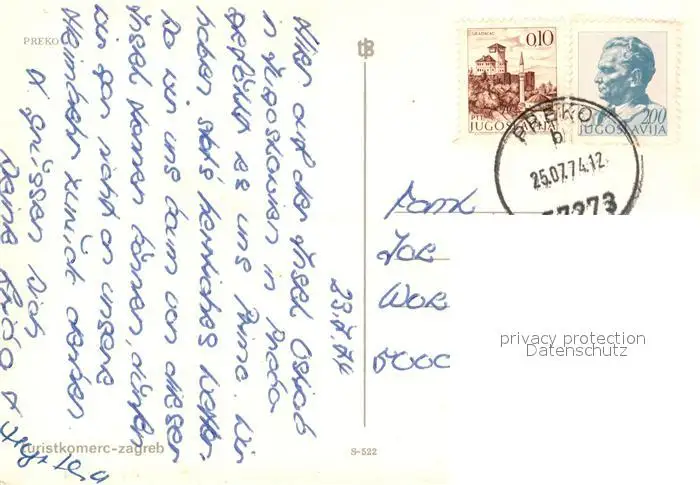 PREKO
GRADAČAC
0,10
PTT
JUGOSLAVIJA
2,00
JUGOSLAVIJA
PREKO
25.07.74.12
57273
23.7.74
Hier auf der Insel Ošljak
in Jugoslawien in
gefällt es uns Prima. Wir
haben stets herrliches Wetter.
Da wir uns kaum von dieser
Insel trennen können, dürfen
wir gar nicht an unsere
Heimkehr zurück denken.
Es grüssen Dich
Deine
Fam
5000
privacy protection
Datenschutz
turistkomerc-zagreb
S-522